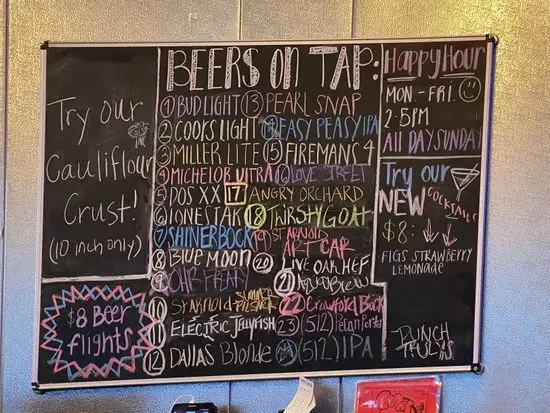 Try our
Cauliflour
Crust!
(10 inch only)
$8 Beer
flights
BEERS ON TAP:
1 BUD LIGHT
2 COORS LIGHT
3 MILLER LITE
4 MICHELOB ULTRA
5 DOS XX
6 LONESTAR
7 SHINER BOCK
8 BLUE MOON
9
10 St ARNOLD SUMMER PILSNER
11 ELECTRIC JELLYFISH
12 DALLAS Blonde
13 PEARL SNAP
14 EASY PEASY IPA
15 FIREMANS 4
16 LOVE STREET
17 ANGRY ORCHARD
18 THIRSTY GOAT
19 ST ARNOLD
ART CAR
20 LIVE OAK HEF
21
22 Crawford Bock
23 (512) Pecan Porter
24 (512) IPA
Happy Hour
MON-FRI.
2-5PM
All DAY SUNDAY
Try our
NEW COCKTAILS
$8:
FIGS STRAWBERRY
LEMONADE
PUNCH